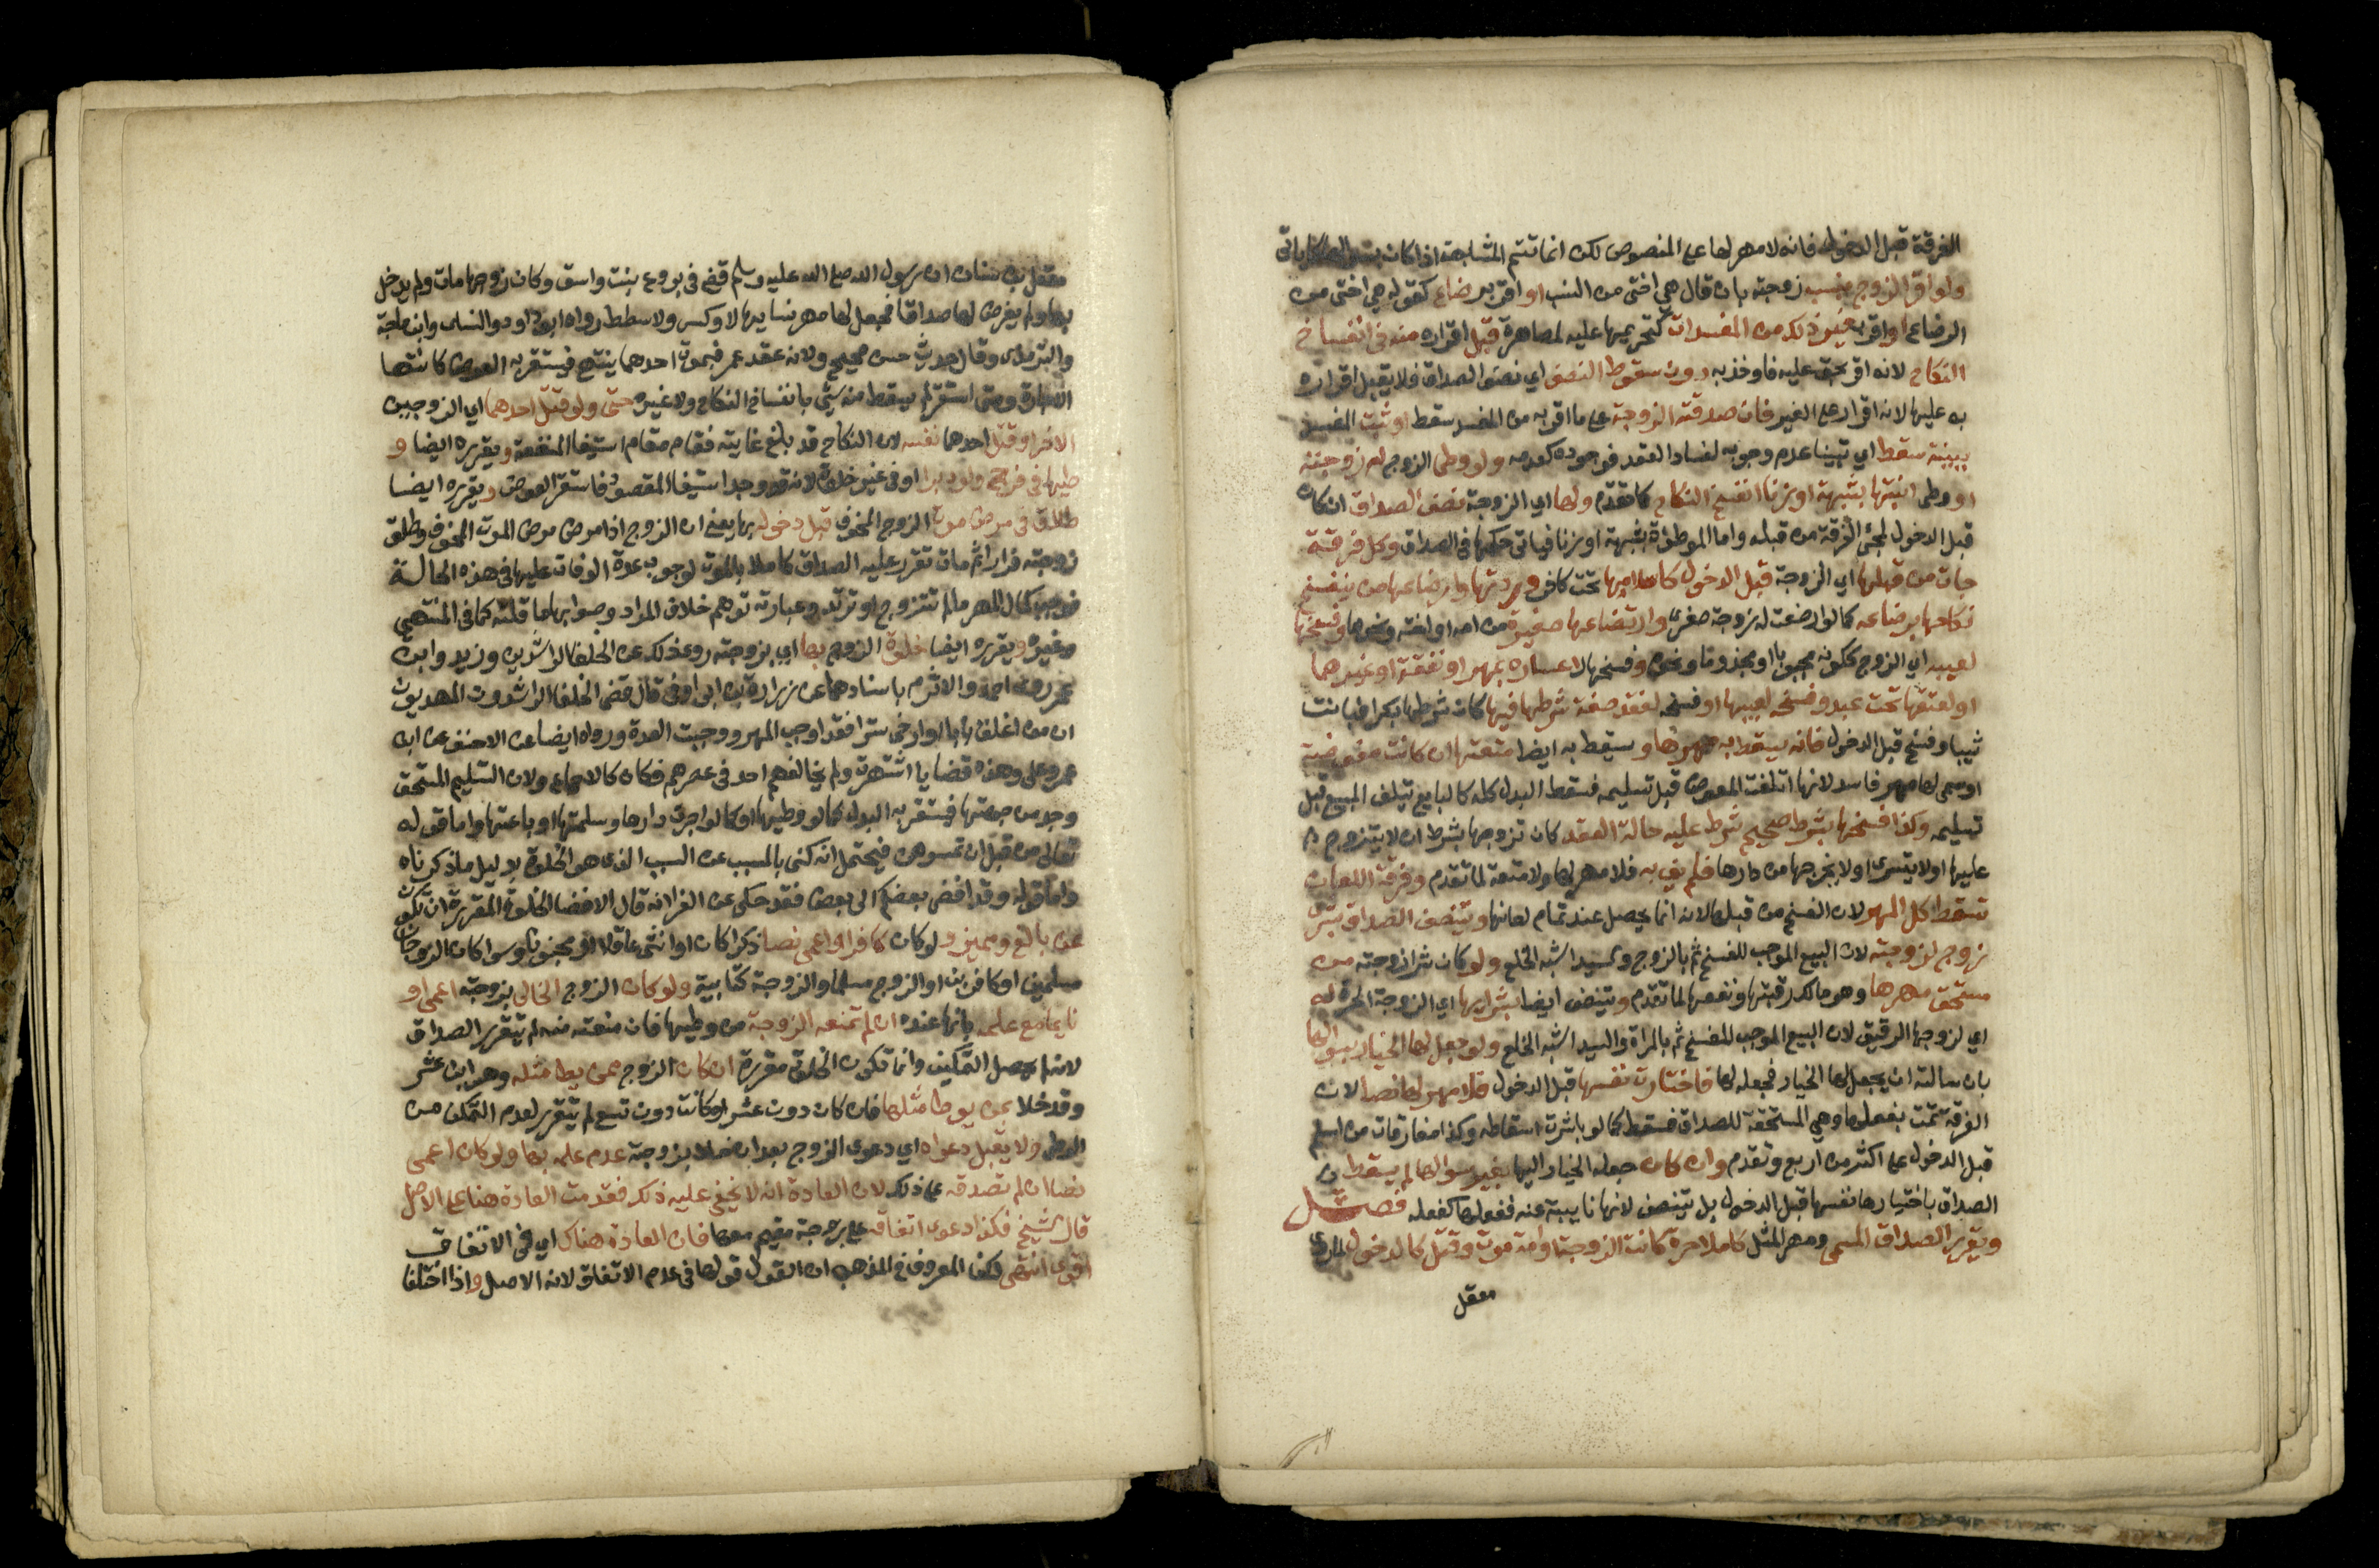 الفرقة قبل الدخول فانه لامهر لها على المنصوص لكن انما تتم المشابهة اذا كان
ولو اقر الزوج بنسب زوجته بان قال هي اختي من النسب او اقر برضاع كقوله هي اختي من
الرضاع او اقر بغير ذلك من المفسدات كتحريمها عليه لمصاهرة قبل اقراره منه في انفساخ
النكاح لانه اقر بحق عليه فاوخذ به دون سقوط النصف اي نصف الصداق فلا يقبل اقراره
به عليها لانه اقرار على الغير فان صدقته الزوجة على ما اقر به من المفسد سقط او ثبت المفسد
ببينة سقط اي تبينا عدم وجوبه لفساد العقد فوجوده كعدمه ولو وطي الزوج ام زوجته
او وطي ابنتها بشبهة او بزنا انفسخ النكاح كما تقدم ولها اي الزوجة نصف الصداق ان كان
قبل الدخول لمجئ الفرقة من قبله واما الموطؤة بشبهة او بزنا فياتي حكمها في الصداق وكل فرقة
جات من قبلها اي الزوجة قبل الدخول كاسلامها تحت كافر وردتها وارضاعها من ينفسخ
نكاحها برضاعه كما لو ارضعت له زوجة صغرى وارتضاعها صغيرة من امه او اخته ونحوها وفسخها
لعيبه اي الزوج ككونه مجبوبا او مجذوما ونحوه وفسخها لاعساره بمهر او نفقة او غيرهما
او لعتقها تحت عبد وفسخه لعيبها او فسخه لفقد صفة شرطها فيها كان شرطها بكرا فبانت
ثيبا وفسخ قبل الدخول فانه يسقط به مهرها ويسقط به ايضا متعتها ان كانت مفوضة
او سمي لها مهر فاسد لانها اتلفت المعوض قبل تسليمه فسقط البدل كله كالبايع يتلف المبيع قبل
تسليمه وكذا فسخها بشرط صحيح شرط عليه حالة العقد كان تزوجها بشرط ان لا يتزوج
عليها او لا يتسرى او لا يخرجها من دارها فلم يف به فلا مهر لها ولا متعة لما تقدم وفرقة اللعان
تسقط كل المهر لان الفسخ من قبلها لانه انما يحصل عند تمام لعانها ويتنصف الصداق بشرى
زوج لزوجته لان البيع الموجب للفسخ تم بالزوج والسيد اشبه الخلع ولو كان شرا زوجته من
مستحق مهرها وهو مالك رقبتها ونفعها لما تقدم ويتنصف ايضا بشرايها اي الزوجة الحرة له
اي لزوجها الرقيق لان البيع الموجب للفسخ تم بالمراة والسيد اشبه الخلع ولو جعل لها الخيار بسوالها
بان سالته ان يجعل لها الخيار فجعله لها فاختارت نفسها قبل الدخول فلا مهر لها نصا لان
الفرقة تمت بفعلها وهي المستحقة للصداق فسقط كما لو باشرت اسقاطه وكذا مفارقات من اسلم
قبل الدخول على اكثر من اربع وتقدم وان كان جعله الخيار اليها بغير سوالها لم يسقط
الصداق باختيارها نفسها قبل الدخول بل يتنصف لانها نايبة عنه ففعلها كفعله فصل
ويقرر الصداق المسمى ومهر المثل كاملا حرة كانت الزوجة او امة موت وقتل كالدخول لما روى
معقل
معقل بن سنان ان رسول الله صلى الله عليه وسلم قضى في بروع بنت واشق وكان زوجها مات ولم يدخل
بها ولم يفرض لها صداقا فجعل لها مهر نسايها لا وكس ولا شطط رواه ابو داود والنساى وابن ماجة
والترمذى وقال حديث حسن صحيح ولانه عقد عمر فبموت احدهما ينتهي فيستقر به العوض كانتها
الاجارة ومتى استقر لم يسقط منه شي بانفساخ النكاح ولا غيره حتى ولو قتل احدهما اي الزوجين
الاخر او قتل احدهما نفسه لان النكاح قد بلغ غايته فقام مقام استيفا المنفعة ويقرره ايضا و
طيها في فرج ولو دبرا او في غير خلوة لانه قد وجد استيفا المقصود فاستقر العوض ويقرره ايضا
طلاق في مرض موت الزوج المخوف قبل دخوله بها يعني ان الزوج اذا مرض مرض الموت المخوف وطلق
زوجته فرارا ثم مات تقرر عليه الصداق كاملا بالموت لوجوب عدة الوفات عليها في هذه الحالة
فوجب كمال المهر ما لم تتزوج او ترتد وعبارته توهم خلاف المراد وصوابها ما قلته كما في المنتهى
وغيره ويقرره ايضا خلوة الزوج بها اي بزوجته روي ذلك عن الخلفا الراشدين وزيد وابن
عمر روى احمد والاثرم باسنادهما عن زرارة بن ابي اوفى قال قضى الخلفا الراشدون المهديون
ان من اغلق بابا او ارخى سترا فقد اوجب المهر ووجبت العدة ورواه ايضا عن الاحنف عن ابن
عمر وعلي وهذه قضايا اشتهرت ولم يخالفهم احد في عصرهم فكان كالاجماع ولان التسليم المستحق
وجد من جهتها فيستقر به البدل كما لو وطيها او كما لو اجرت دارها وسلمتها او باعتها واما قوله
تعالى من قبل ان تمسوهن فيحتمل انه كنى بالمسبب عن السبب الذى هو الخلوة بدليل ما ذكرناه
واما قوله وقد افضى بعضكم الى بعض فقد حكي عن الفرا انه قال الافضا الخلوة المقررة ان تكون
عن بالغ ومميز ولو كان كافرا او اعمى نصا ذكرا كان او انثى عاقلا او مجنونا وسوا كان الزوجان
مسلمين او كافرين او الزوج مسلما والزوجة كتابية ولو كان الزوج الخالي بزوجته اعمى او
نايما مع علمه بانها عنده ان لم تمنعه الزوجة من وطيها فان منعته منه لم يتقرر الصداق
لانه لم يحصل التمكين وانما تكون الخلوة مقررة ان كان الزوج ممن يطا مثله وهو ابن عشر
وقد خلا بمن يوطا مثلها فان كان دون عشر او كانت دون تسع لم يتقرر لعدم التمكن من
الوطي ولا يقبل دعواه اي دعوى الزوج بعد ان خلا بزوجته عدم علمه بها ولو كان اعمى
نصا ان لم تصدقه على ذلك لان العادة انه لا يخفى عليه ذلك فقدمت العادة هنا على الاصل
قال الشيخ فكذا دعوى انفاقه على زوجة مقيم معها فان العادة هناك اي في الانفاق
اقوى انتهى لكن المعروف في المذهب ان القول قولها في عدم الانفاق لانه الاصل واذا اختلفا